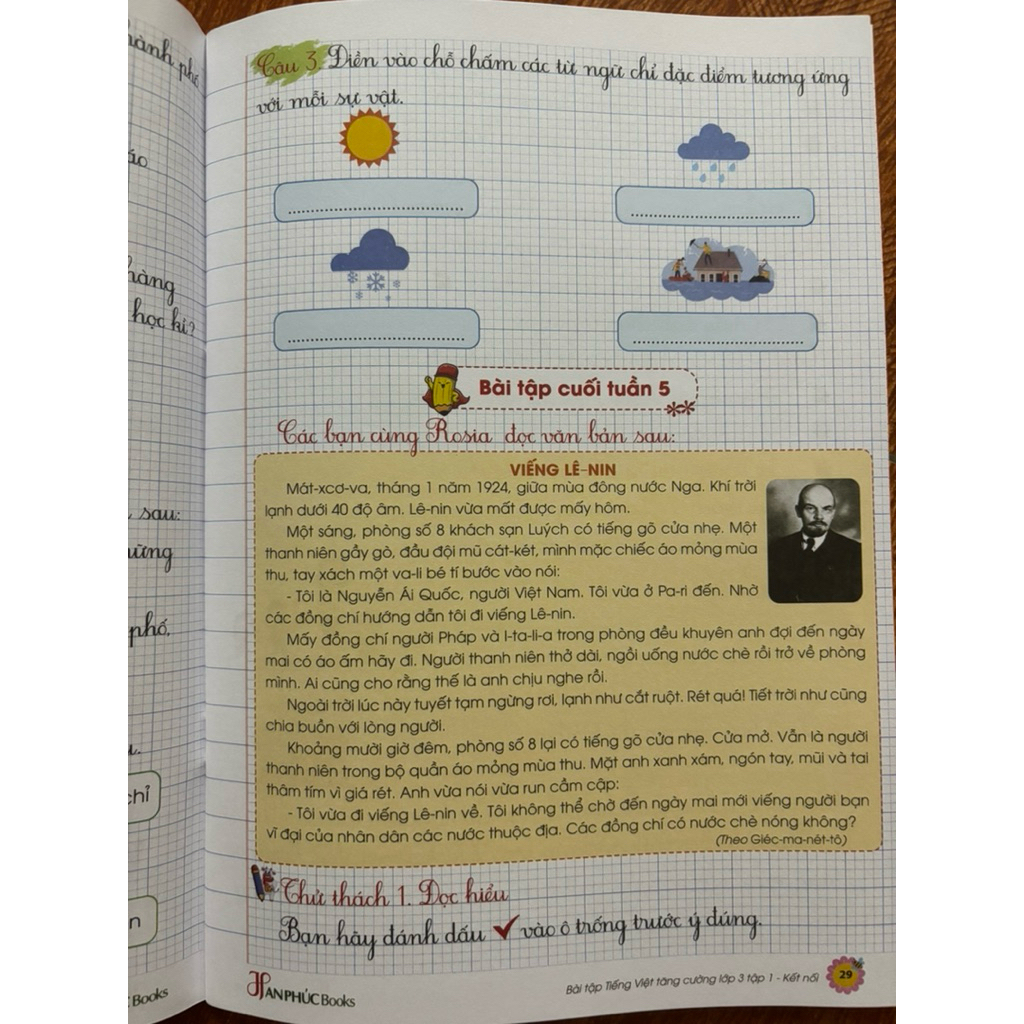 ành phố
áo
hàng
học kì?
sau:
ững
phố.
chỉ
n
Books
Câu 3. Điền vào chỗ chấm các từ ngữ chỉ đặc điểm tương ứng
với mỗi sự vật.
Bài tập cuối tuần 5
Các bạn cùng Rosia đọc văn bản sau:
VIẾNG LÊ-NIN
Mát-xcơ-va, tháng 1 năm 1924, giữa mùa đông nước Nga. Khí trời
lạnh dưới 40 độ âm. Lê-nin vừa mất được mấy hôm.
Một sáng, phòng số 8 khách sạn Luých có tiếng gõ cửa nhẹ. Một
thanh niên gầy gò, đầu đội mũ cát-két, mình mặc chiếc áo mỏng mùa
thu, tay xách một va-li bé tí bước vào nói:
- Tôi là Nguyễn Ái Quốc, người Việt Nam. Tôi vừa ở Pa-ri đến. Nhờ
các đồng chí hướng dẫn tôi đi viếng Lê-nin.
Mấy đồng chí người Pháp và I-ta-li-a trong phòng đều khuyên anh đợi đến ngày
mai có áo ấm hãy đi. Người thanh niên thở dài, ngồi uống nước chè rồi trở về phòng
mình. Ai cũng cho rằng thế là anh chịu nghe rồi.
Ngoài trời lúc này tuyết tạm ngừng rơi, lạnh như cắt ruột. Rét quá! Tiết trời như cũng
chia buồn với lòng người.
Khoảng mười giờ đêm, phòng số 8 lại có tiếng gõ cửa nhẹ. Cửa mở. Vẫn là người
thanh niên trong bộ quần áo mỏng mùa thu. Mặt anh xanh xám, ngón tay, mũi và tai
thâm tím vì giá rét. Anh vừa nói vừa run cầm cập:
- Tôi vừa đi viếng Lê-nin về. Tôi không thể chờ đến ngày mai mới viếng người bạn
vĩ đại của nhân dân các nước thuộc địa. Các đồng chí có nước chè nóng không?
(Theo Giéc-ma-nét-tô)
Thử thách 1. Đọc hiểu
Bạn hãy đánh dấu ✓ vào ô trống trước ý đúng.
HANPHÚC Books
Bài tập Tiếng Việt tăng cường lớp 3 tập 1 - Kết nối
29